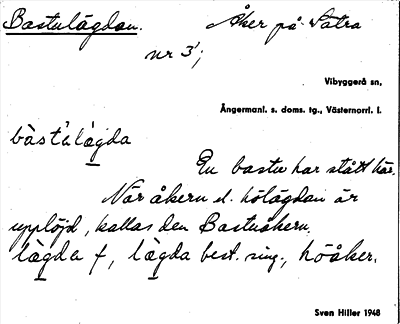 Bastulägdan. Åker på Sätra
nr 3¹;
Vibyggerå sn,
Ångermanl. s. doms. tg., Västernorrl. l.
bàstʹlàgda
En bastu har stått här.
När åkern el. hölägdan är
upplöjd, kallas den Bastuåkern.
làgda f, làgda best. sing., höåker.
Sven Hiller 1948